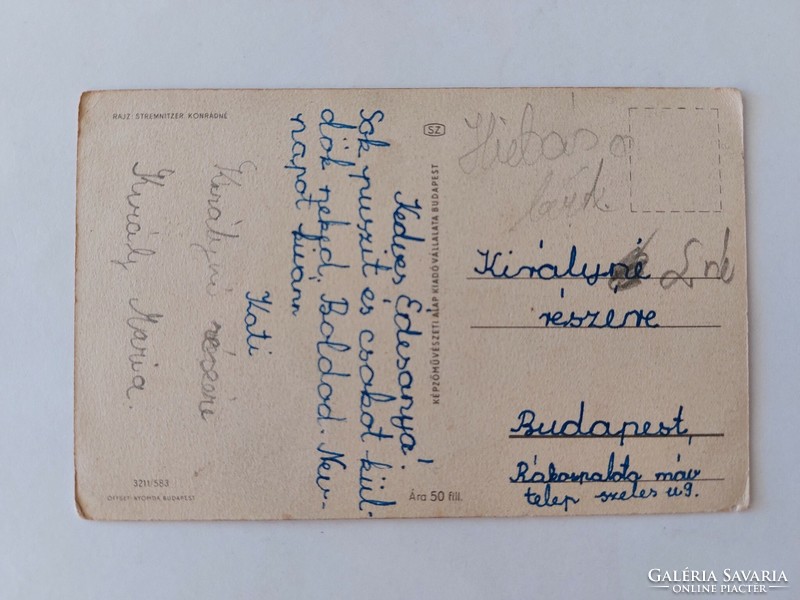 RAJZ STREMNITZER KONRÁDNÉ
Kedves Édesanyá!
Sok puszit és csokot kül-
dök neked, Boldod. Nev-
napot kivánn
Kati
Királyné részére
Király Maria.
3211/583
OFFSET-NYOMDA BUDAPEST
SZ
KÉPZŐMŰVÉSZETI ALAP KIADÓVÁLLALATA BUDAPEST
Ára 50 fill.
Hiebás a
Királyné
L né
részere
Budapest,
Rákospalota máv
telep szeles u 9.
GALÉRIA SAVARIA
ONLINE PIACTÉR